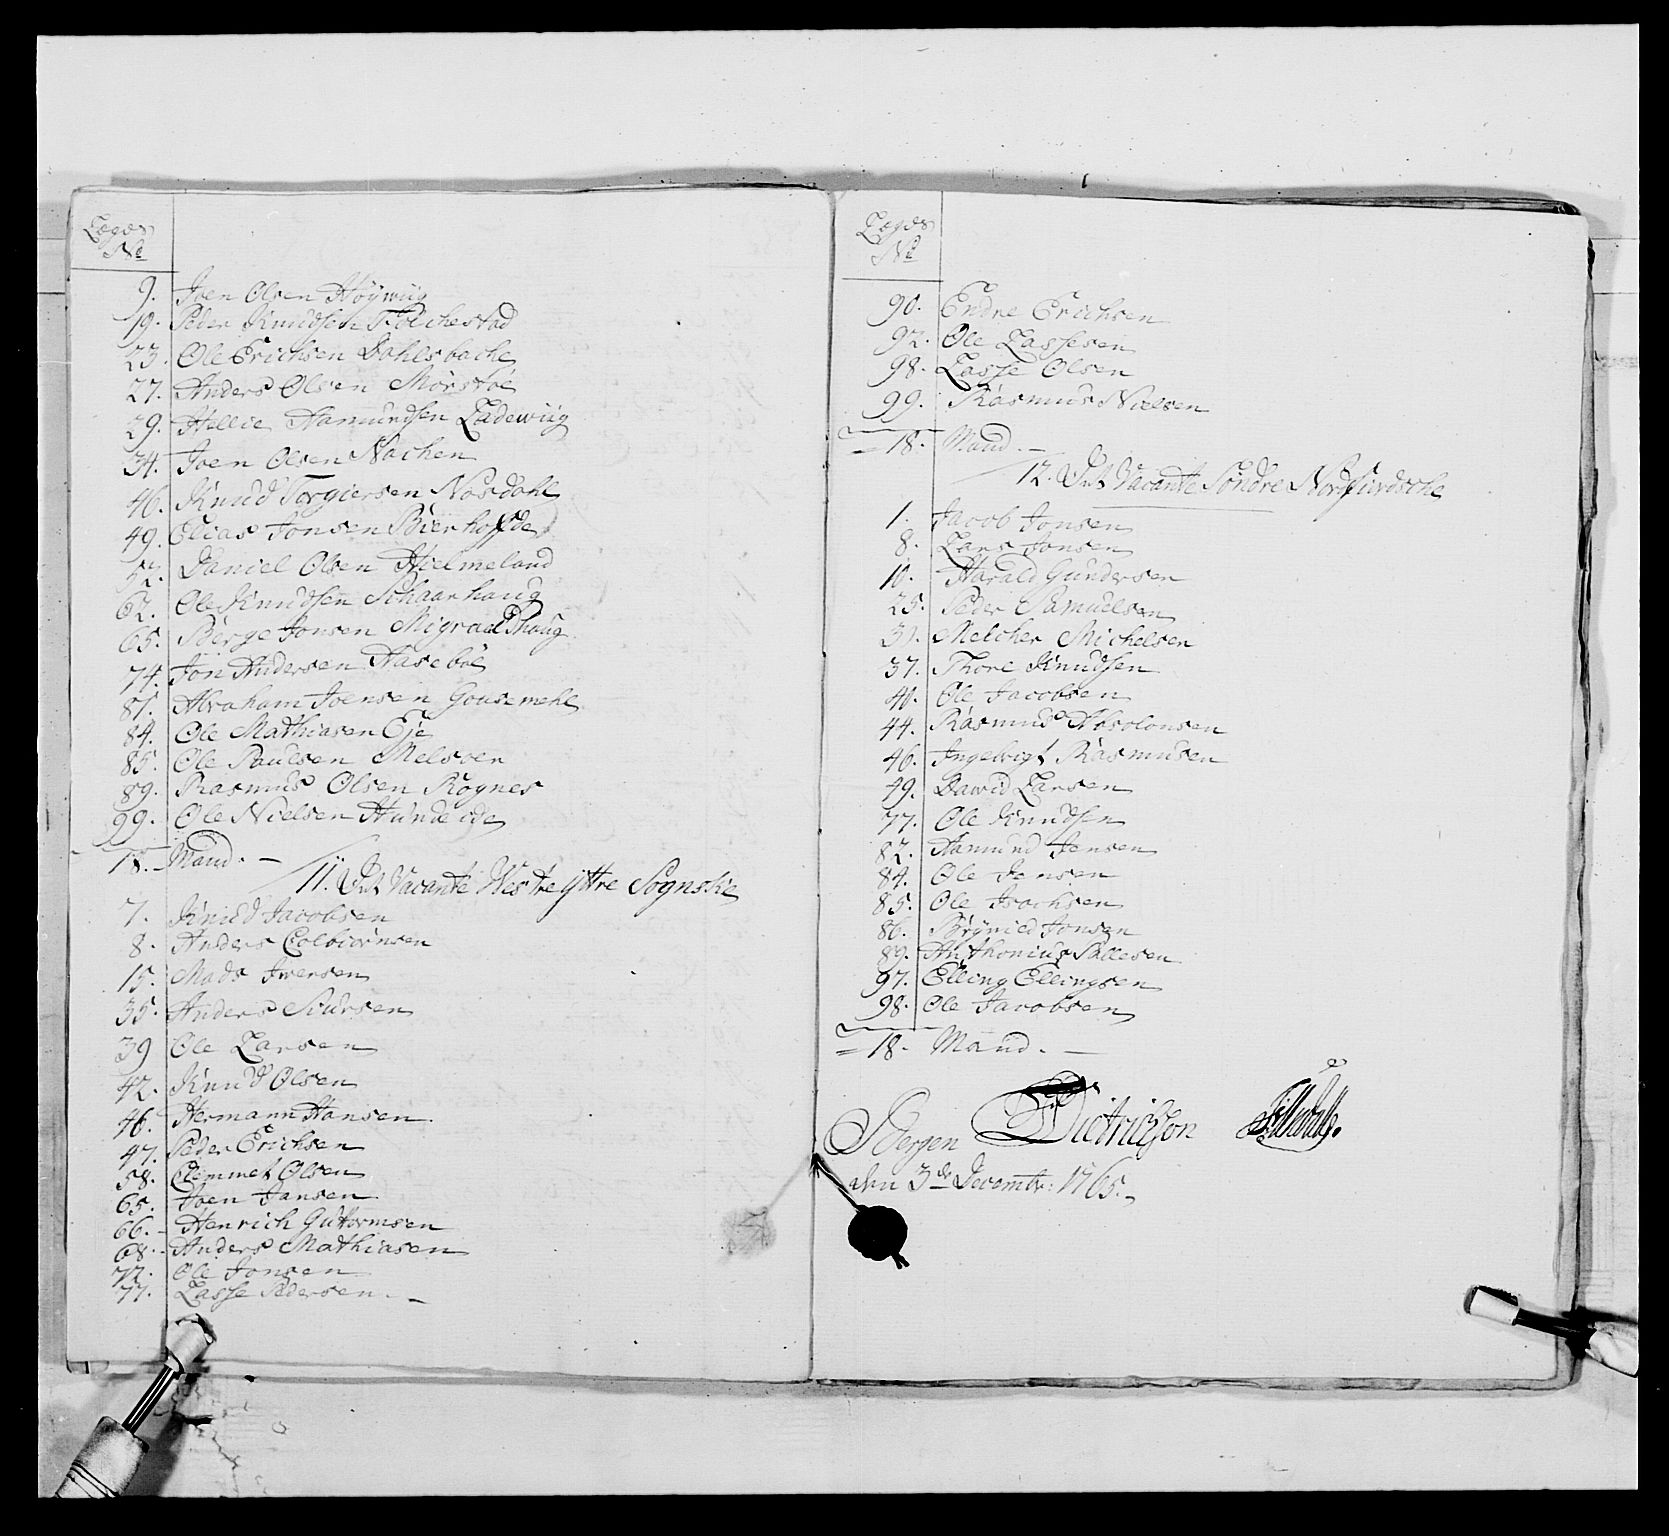 Lægds
No
9. Joen Olsen Höywiig
19. Peder Knudsen Folchestad
23. Ole Erichsen Dahlsbache
27. Anders Olsen Mörstöe
29. Hellie Aamundsen Ladewiig
34. Joen Olsen Nachen
46. Knud Torgiersen Nosdahl
49. Elias Jonsen Bierhofde
52. Daniel Olsen Hielmeland
62. Ole Knudsen Schaarhaug
65. Börge Jonsen Migraedhaug
74. Jon Andersen Haseböe
81. Abraham Joensen Gousemehl
84. Ole Mathiasen Eje
85. Ole Paulsen Melsver
89. Rasmus Olsen Rognes
99. Ole Nielsen Hundeide
18. Mand. -
11. Det Vacante Westre Yttre Sognske
7. Knud Jacobsen
8. Anders Colbiörnsen
15. Mads Iwersen
35. Anders Siursen
39 Ole Larsen
42. Knud Olsen
46. Hermann Hansen
47. Peder Erichsen
58. Clemmet Olsen
65. Joen Jansen
66. Henrich Guttormsen
68. Anders Mathiasen
72. Ole Jonsen
77. Lasse Pedersen. -
Lægds
No
90. Endre Erichsen
92. Ole Lassesen
98. Lasse Olsen
99. Rasmus Nielsen
18. Mand. -
12. Det Vacante Söndre Nordfiurdsche
1. Jacob Jonsen
8. Lars Jonsen
10. Harald Gundersen
25. Peder Samuelsen
31. Melcher Michelsen
37. Thore Knudsen
40. Ole Jacobsen
44. Rasmus Absolonsen
46. Ingebrigt Rasmusen
49. Dawid Larsen
77. Ole Knudsen
82. Aamund Jensen
84. Ole Jensen
85. Ole Isachsen
86. Brynild Jonsen
89. Anthonius Pallesen
97. Elling Ellingsen
98. Ole Jacobsen
18. Mand. -
Bergen Dietrichson
den 3de Decembr: 1765. -